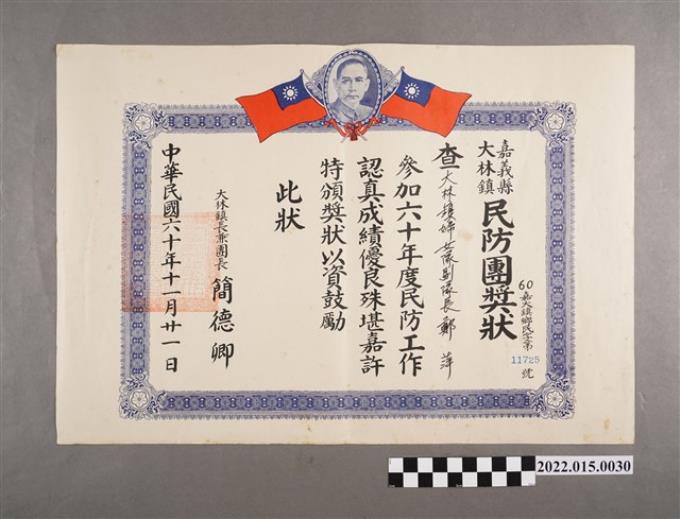 嘉義縣
大林鎮
民防團獎狀
60嘉大鎮鄉民字第
11725
號
查大林鎮婦女隊副隊長鄭萍
參加六十年度民防工作
認真成績優良殊堪嘉許
特頒獎狀以資鼓勵
此狀
大林鎮長兼團長 簡德卿
中華民國六十年十一月廿一日
2022.015.0030